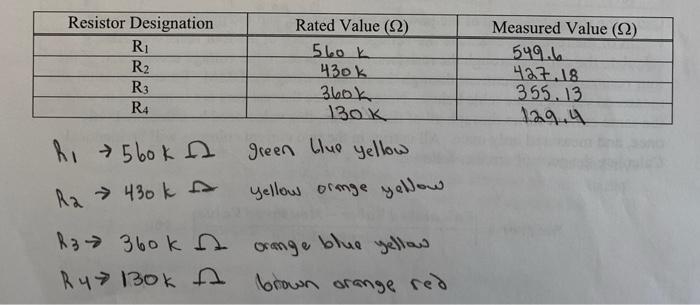 Resistor Designation Rated Value (Ω) Measured Value (Ω)
R1 560 k 549.6
R2 430k 427.18
R3 360k 355.13
R4 130K 129.4
R1 → 560 k Ω green blue yellow
R2 → 430 k Ω yellow orange yellow
R3 → 360 k Ω orange blue yellow
R4 → 130k Ω brown orange red